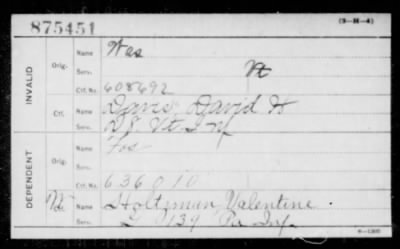 875451
(3—H—4)
INVALID
Orig.
Name Was
Serv. Vt
Ctf. No. 608692
Ctf.
Name Davis David H
Serv. D 8 Vt Inf
DEPENDENT
Orig.
Name For
Serv.
Ctf. No. 636010
Name Holtzman Valentine
Serv. 139 Pa Inf
6—1265